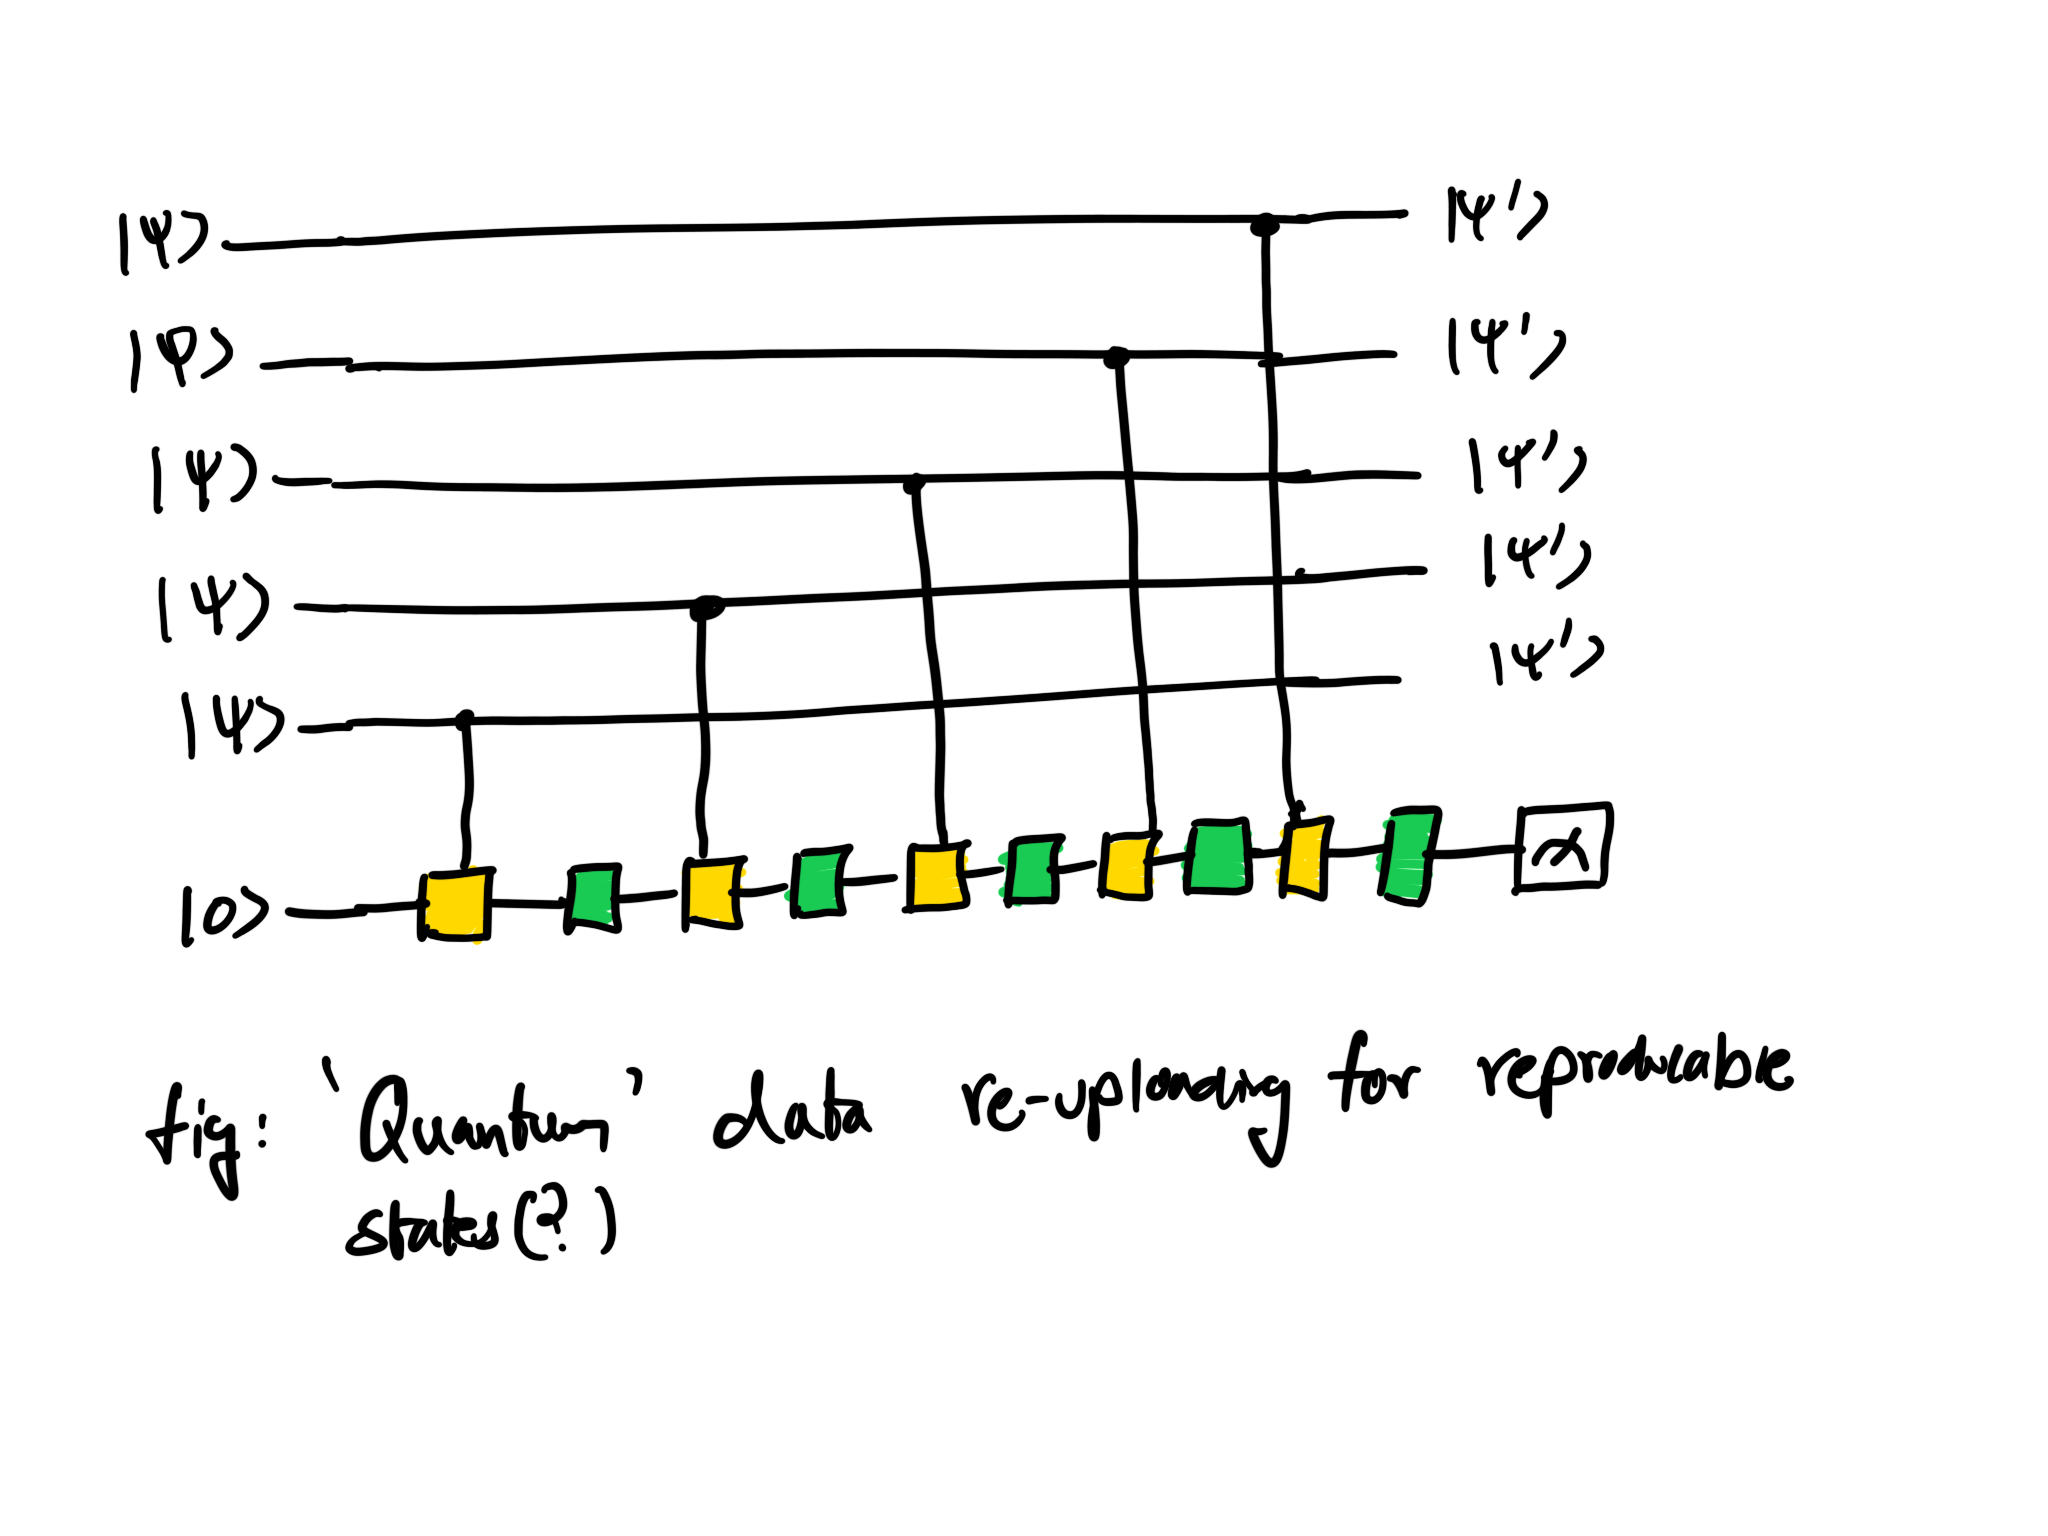 |ψ⟩ |ψ'⟩
|ψ⟩ |ψ'⟩
|ψ⟩ |ψ'⟩
|ψ⟩ |ψ'⟩
|ψ⟩ |ψ'⟩
|0⟩
fig: 'Quantum' data re-uploading for reproducable
states(?)